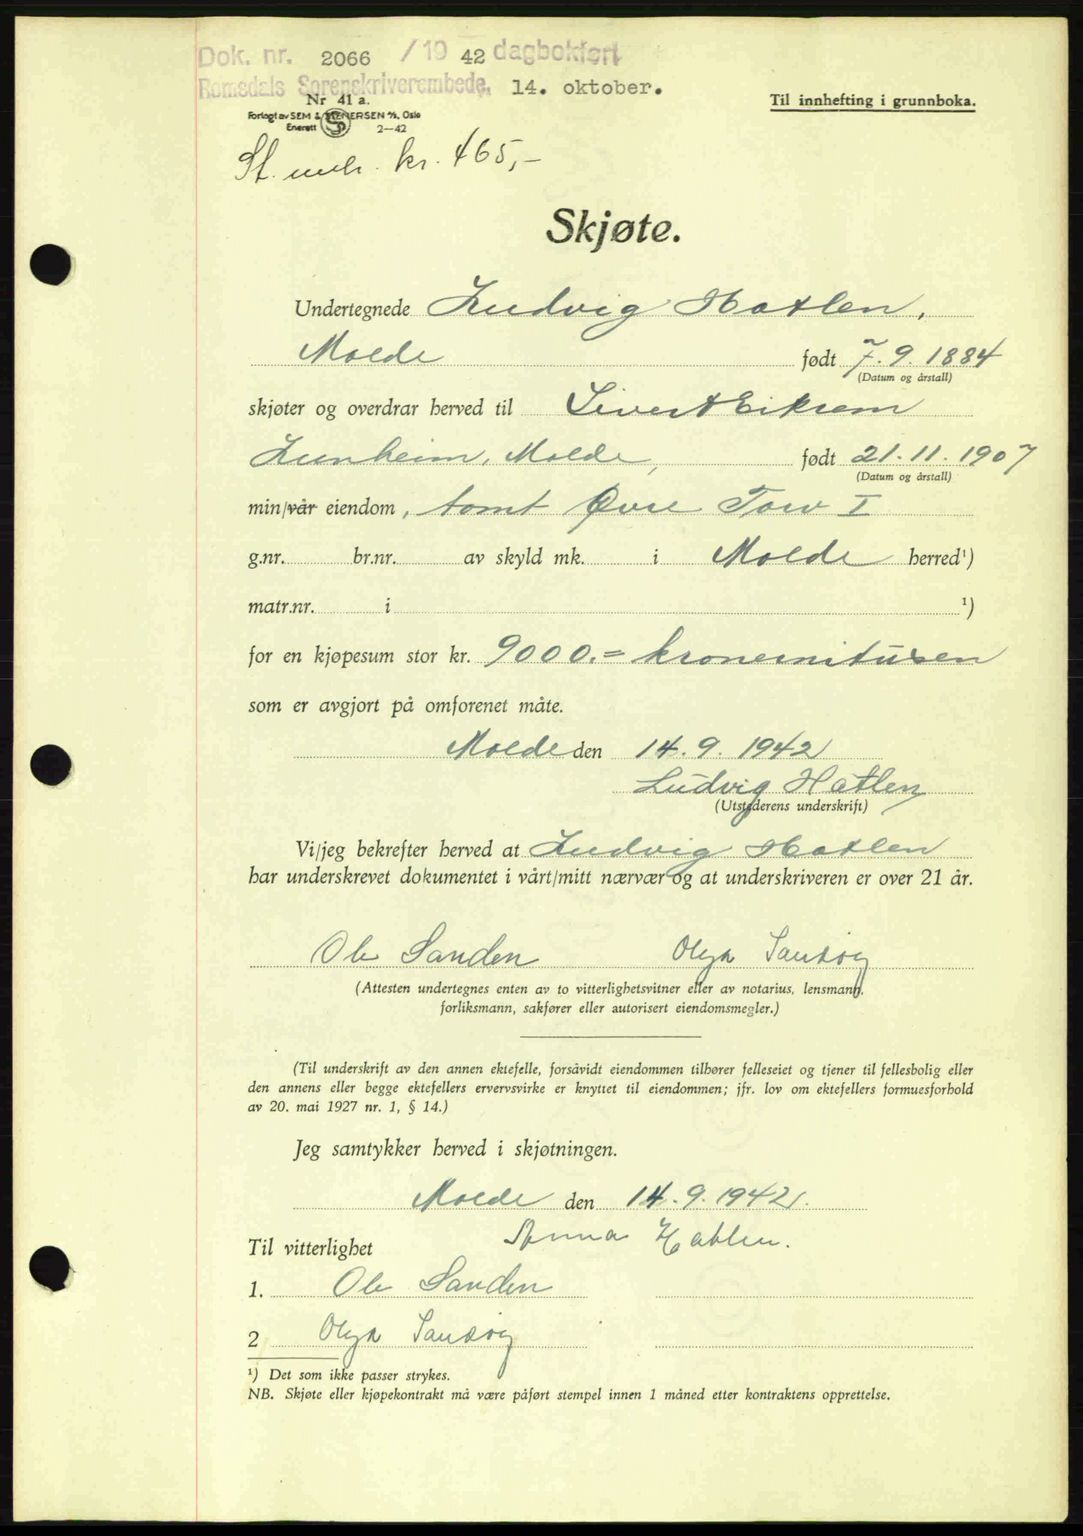 Dok. nr. 2066 /19 42 dagbokført
Romsdals Sorenskriverembede, 14. oktober.
Nr 41 a.
Til innhefting i grunnboka.
Forlagt av SEM & STENERSEN A/S, Oslo
Enerett 2—42
St. mrk. kr. 465,-
Skjøte.
Undertegnede Ludvig Hatlen,
Molde født 7.9.1884
(Datum og årstall)
skjøter og overdrar herved til Sivert Eikrem
Lunheim, Molde, født 21.11.1907
(Datum og årstall)
min/vår eiendom, tomt Øvre Torv I
g.nr. br.nr. av skyld mk. i Molde herred¹)
matr.nr. i ¹)
for en kjøpesum stor kr. 9000.= kronernitusen
som er avgjort på omforenet måte.
Molde den 14.9.1942
Ludvig Hatlen
(Utstederens underskrift)
Vi/jeg bekrefter herved at Ludvig Hatlen
har underskrevet dokumentet i vårt/mitt nærvær og at underskriveren er over 21 år.
Ole Sanden Olga Sandøy
(Attesten undertegnes enten av to vitterlighetsvitner eller av notarius, lensmann,
forliksmann, sakfører eller autorisert eiendomsmegler.)
(Til underskrift av den annen ektefelle, forsåvidt eiendommen tilhører felleseiet og tjener til fellesbolig eller
den annens eller begge ektefellers ervervsvirke er knyttet til eiendommen; jfr. lov om ektefellers formuesforhold
av 20. mai 1927 nr. 1, § 14.)
Jeg samtykker herved i skjøtningen.
Molde den 14.9.1942.
Anna Hatlen.
Til vitterlighet
1. Ole Sanden
2 Olga Sandøy
¹) Det som ikke passer strykes.
NB. Skjøte eller kjøpekontrakt må være påført stempel innen 1 måned etter kontraktens opprettelse.